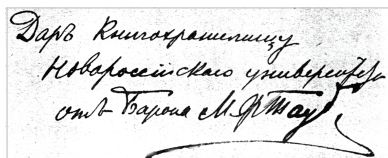 Даръ Книгохранилищу
Новороссійскаго университета
отъ Барона М. Ф. Таубе